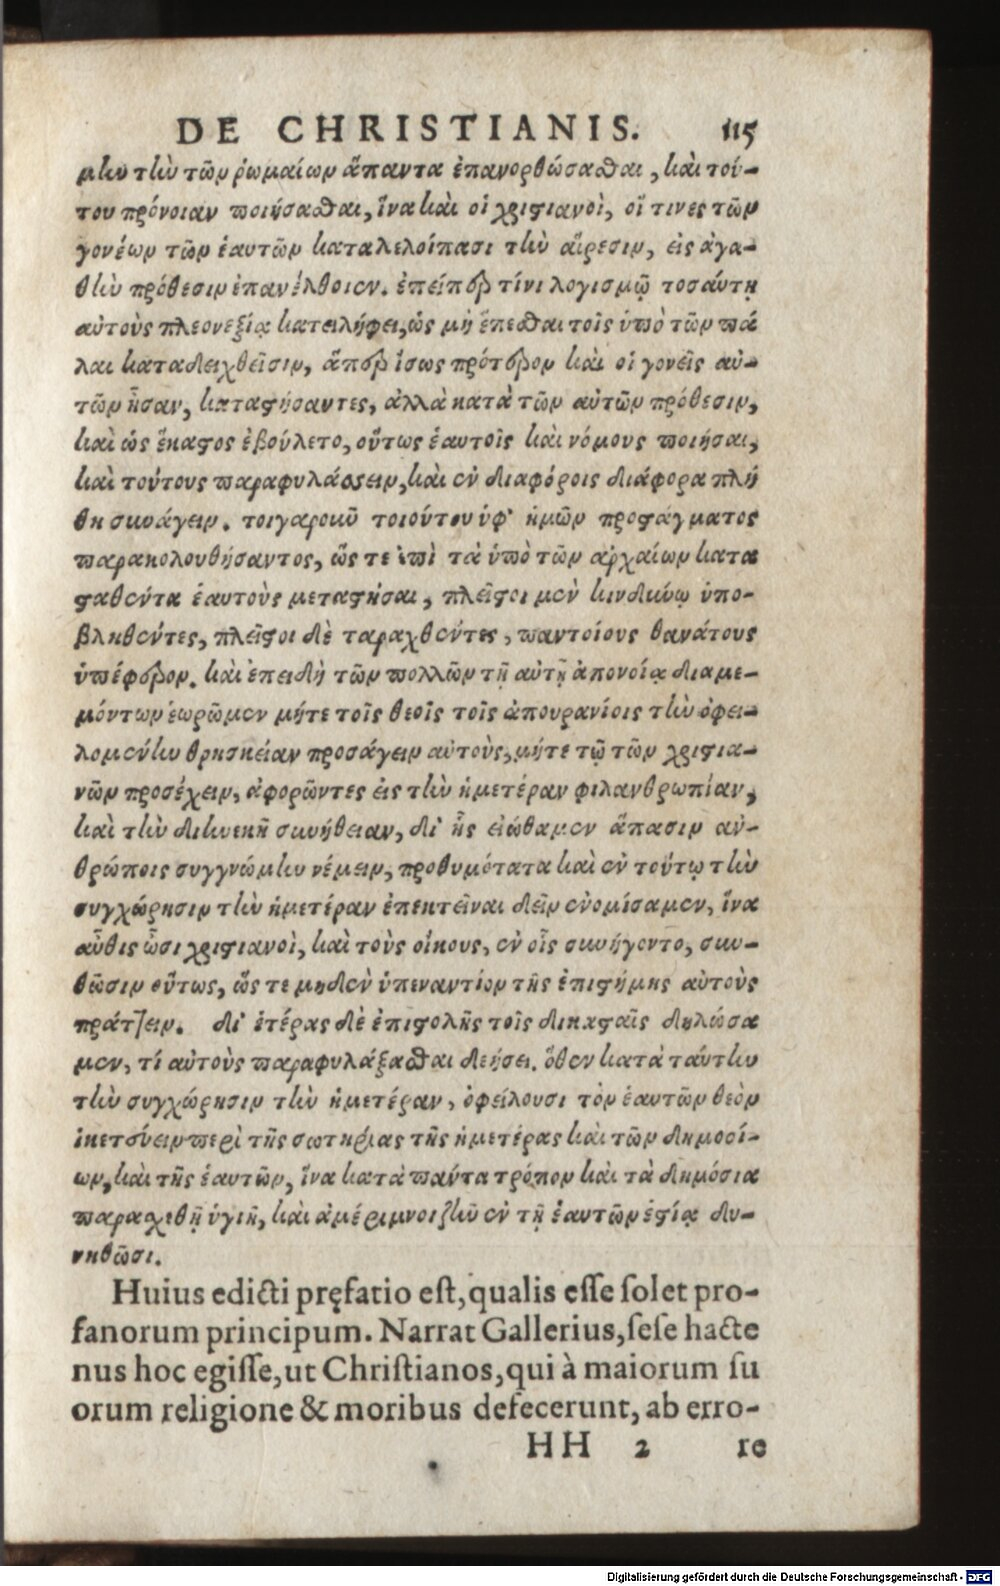 DE CHRISTIANIS. 115
μην την τῶν ῥωμαίων ἅπαντα ἐπανορθώσασθαι, καὶ τού-
του πρόνοιαν ποιήσασθαι, ἵνα καὶ οἱ χριστιανοὶ, οἵ τινες τῶν
γονέων τῶν ἑαυτῶν καταλελοίπασι τὴν αἵρεσιν, εἰς ἀγα-
θὴν πρόθεσιν ἐπανέλθοιεν. ἐπείπερ τίνι λογισμῷ τοσάυτη
αὐτοὺς πλεονεξίᾳ κατειλήφει, ὡς μὴ ἕπεσθαι τοῖς ὑπὸ τῶν πά
λαι καταδειχθεῖσιν, ἅπερ ἴσως πρότερον καὶ οἱ γονεῖς αὐ-
τῶν ἦσαν, καταστήσαντες, ἀλλὰ κατὰ τῶν αὐτῶν πρόθεσιν,
καὶ ὡς ἕκαστος ἐβούλετο, οὕτως ἑαυτοῖς καὶ νόμους ποιήσαι,
καὶ τούτους παραφυλάσσειν, καὶ ἐν διαφόροις διάφορα πλή
θη συνάγειν. τοιγαροῦν τοιούτου ὑφ' ἡμῶν προστάγματος
παρακολουθήσαντος, ὥς τε ἐπὶ τὰ ὑπὸ τῶν ἀρχαίων κατα
σταθέντα ἑαυτοὺς μεταστῆσαι, πλεῖστοι μὲν κινδύνῳ ὑπο-
βληθέντες, πλεῖστοι δὲ ταραχθέντες, παντοίους θανάτους
ὑπέφερον. καὶ ἐπειδὴ τῶν πολλῶν τῇ αὐτῇ ἀπονοίᾳ διαμε-
μόντων ἑωρῶμεν μήτε τοῖς θεοῖς τοῖς ἀπουρανίοις τὴν ὀφει-
λομένην θρησκείαν προσάγειν αὐτοὺς, μήτε τῷ τῶν χριστια-
νῶν προσέχειν, ἀφορῶντες εἰς τὴν ἡμετέραν φιλανθρωπίαν,
καὶ τὴν διηνεκῆ συνήθειαν, δι' ἧς εἰώθαμεν ἅπασιν ἀν-
θρώποις συγγνώμην νέμειν, προθυμότατα καὶ ἐν τούτῳ τὴν
συγχώρησιν τὴν ἡμετέραν ἐπεκτεῖναι δεῖν ἐνομίσαμεν, ἵνα
αὖθις ὦσι χριστιανοὶ, καὶ τοὺς οἴκους, ἐν οἷς συνήγοντο, συν-
θῶσιν οὕτως, ὥς τε μηδὲν ὑπεναντίον τῆς ἐπιστήμης αὐτοὺς
πράττειν. δι' ἑτέρας δὲ ἐπιστολῆς τοῖς δικασταῖς δηλώσα
μεν, τί αὐτοὺς παραφυλάξασθαι δεήσει. ὅθεν κατὰ ταύτην
τὴν συγχώρησιν τὴν ἡμετέραν, ὀφείλουσι τὸν ἑαυτῶν θεὸν
ἱκετεύειν περὶ τῆς σωτηρίας τῆς ἡμετέρας καὶ τῶν δημοσί-
ων, καὶ τῆς ἑαυτῶν, ἵνα κατὰ πάντα τρόπον καὶ τὰ δημόσια
παρασχεθῇ ὑγιῆ, καὶ ἀμέριμνοι ζῆν ἐν τῇ ἑαυτῶν ἑστίᾳ δυ-
νηθῶσι.
Huius edicti pręfatio est, qualis esse solet pro-
fanorum principum. Narrat Gallerius, sese hacte
nus hoc egisse, ut Christianos, qui à maiorum su
orum religione & moribus defecerunt, ab erro-
HH 2 re
Digitalisierung gefördert durch die Deutsche Forschungsgemeinschaft - DFG